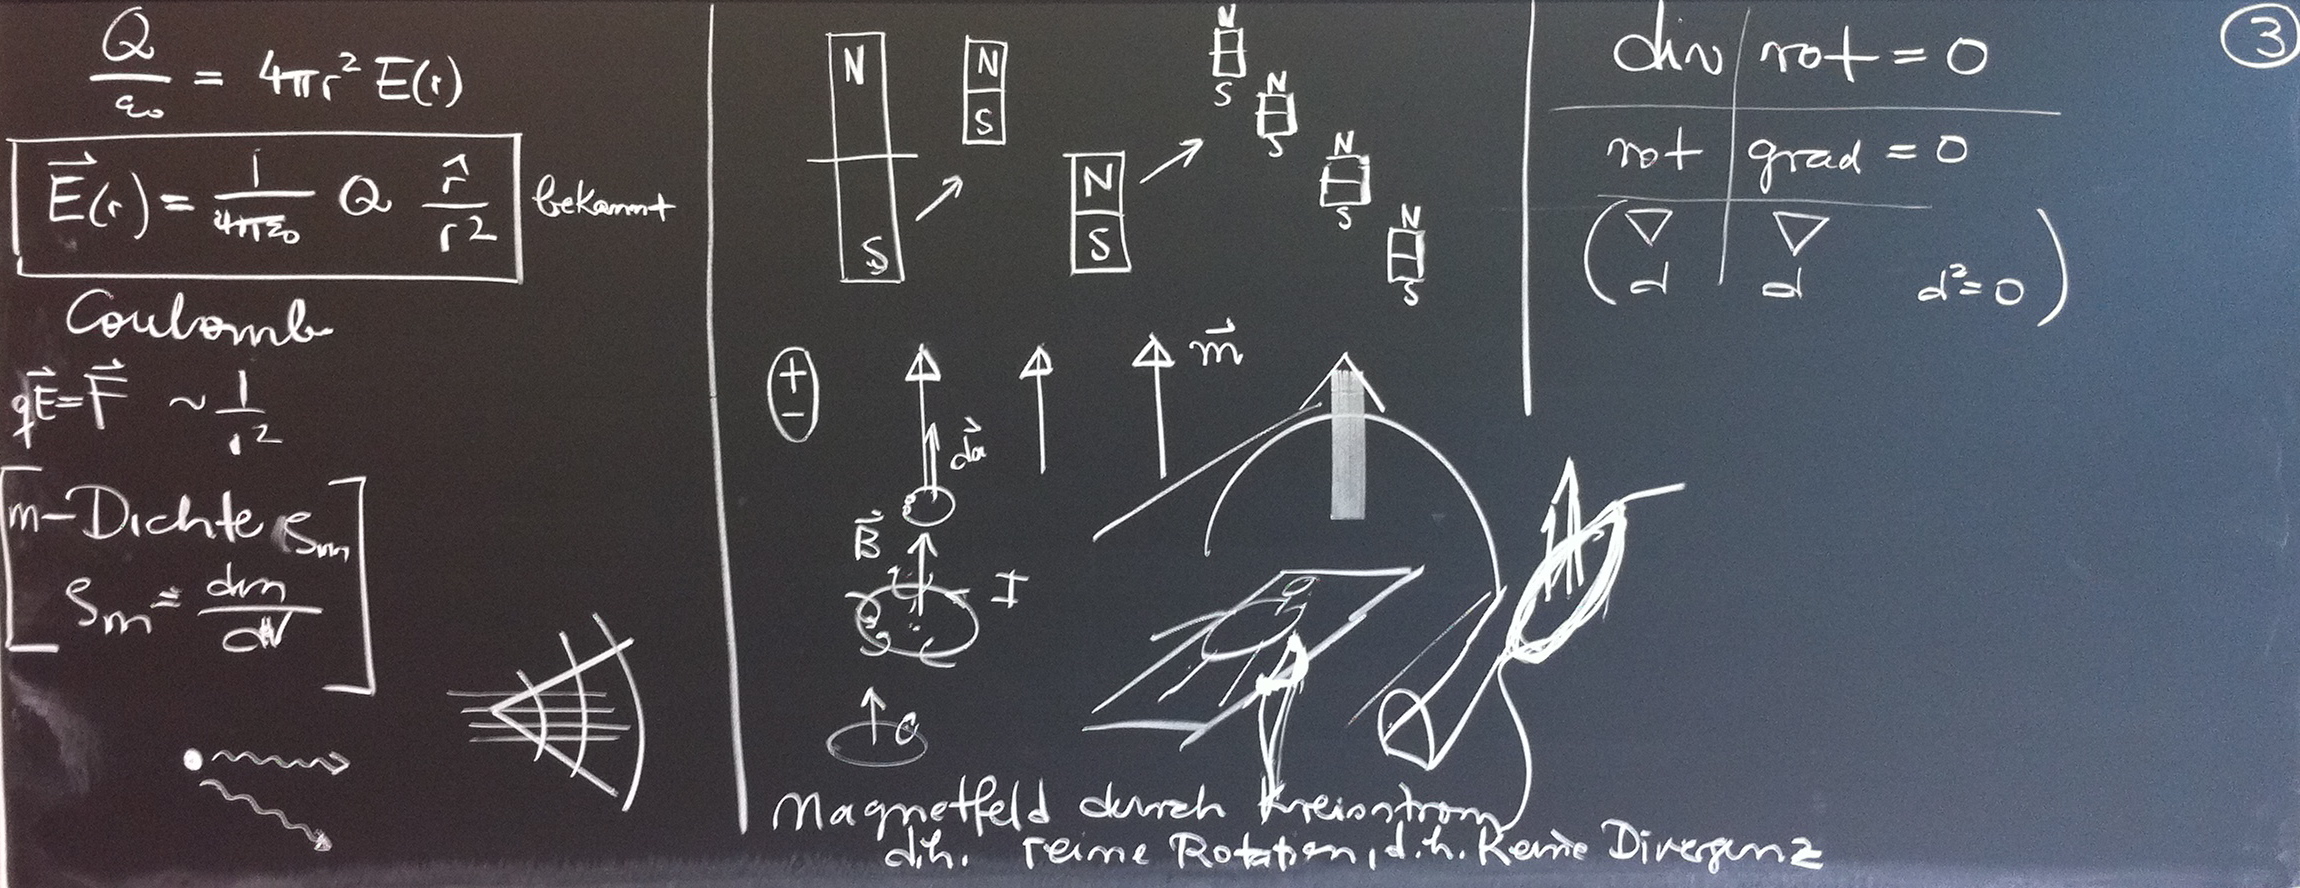 Q/ε₀ = 4πr² E(r)
E⃗(r) = 1/4πε₀ Q r̂/r² bekannt
Coulomb
qE⃗ = F⃗ ~ 1/r²
[m-Dichte ρm
ρm = dm/dV]
N
S
N
S
N
S
N
S
N
S
N
S
N
S
+
-
m⃗
da⃗
B⃗
I
Magnetfeld durch Kreisstrom
d.h. reine Rotation, d.h. Keine Divergenz
div rot = 0
rot grad = 0
(▽ ▽
d d d²=0)
3